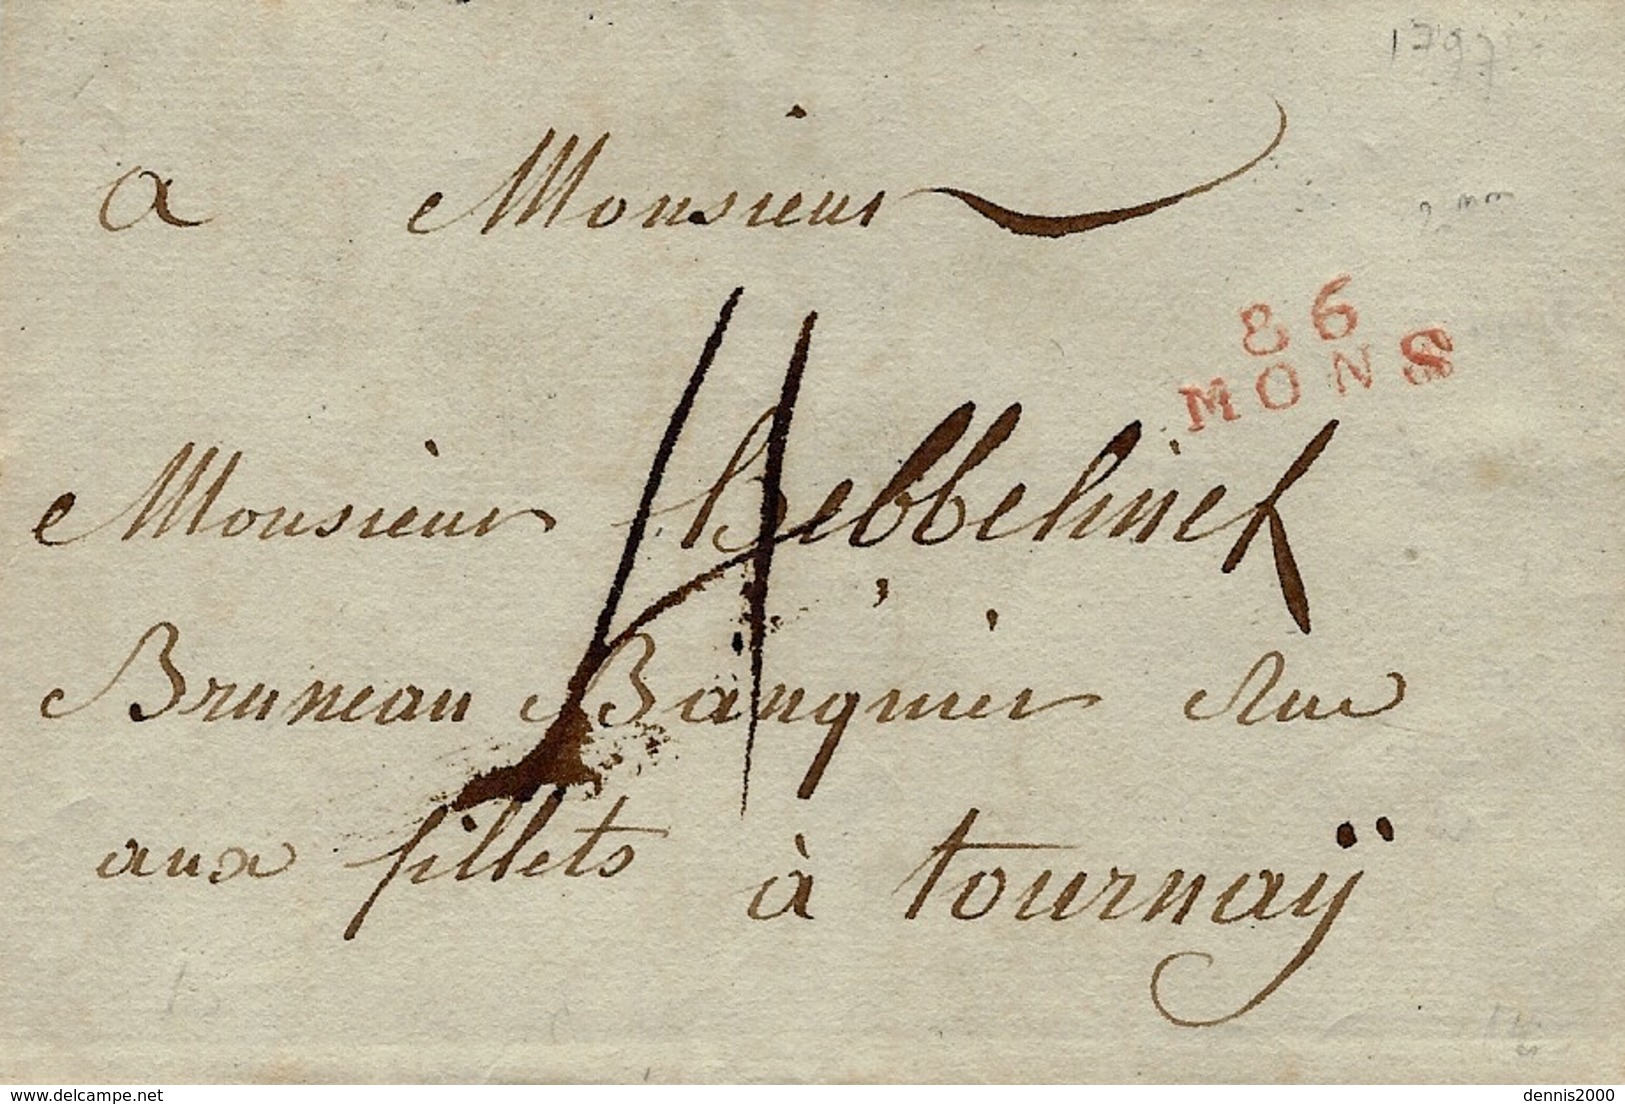 1797
a Monsieur
9 mm
86
MONS
4
Monsieur hebbelinck
Bruneau Banquier Rue
aux fillets
à tournaÿ
delcampe.net
dennis2000